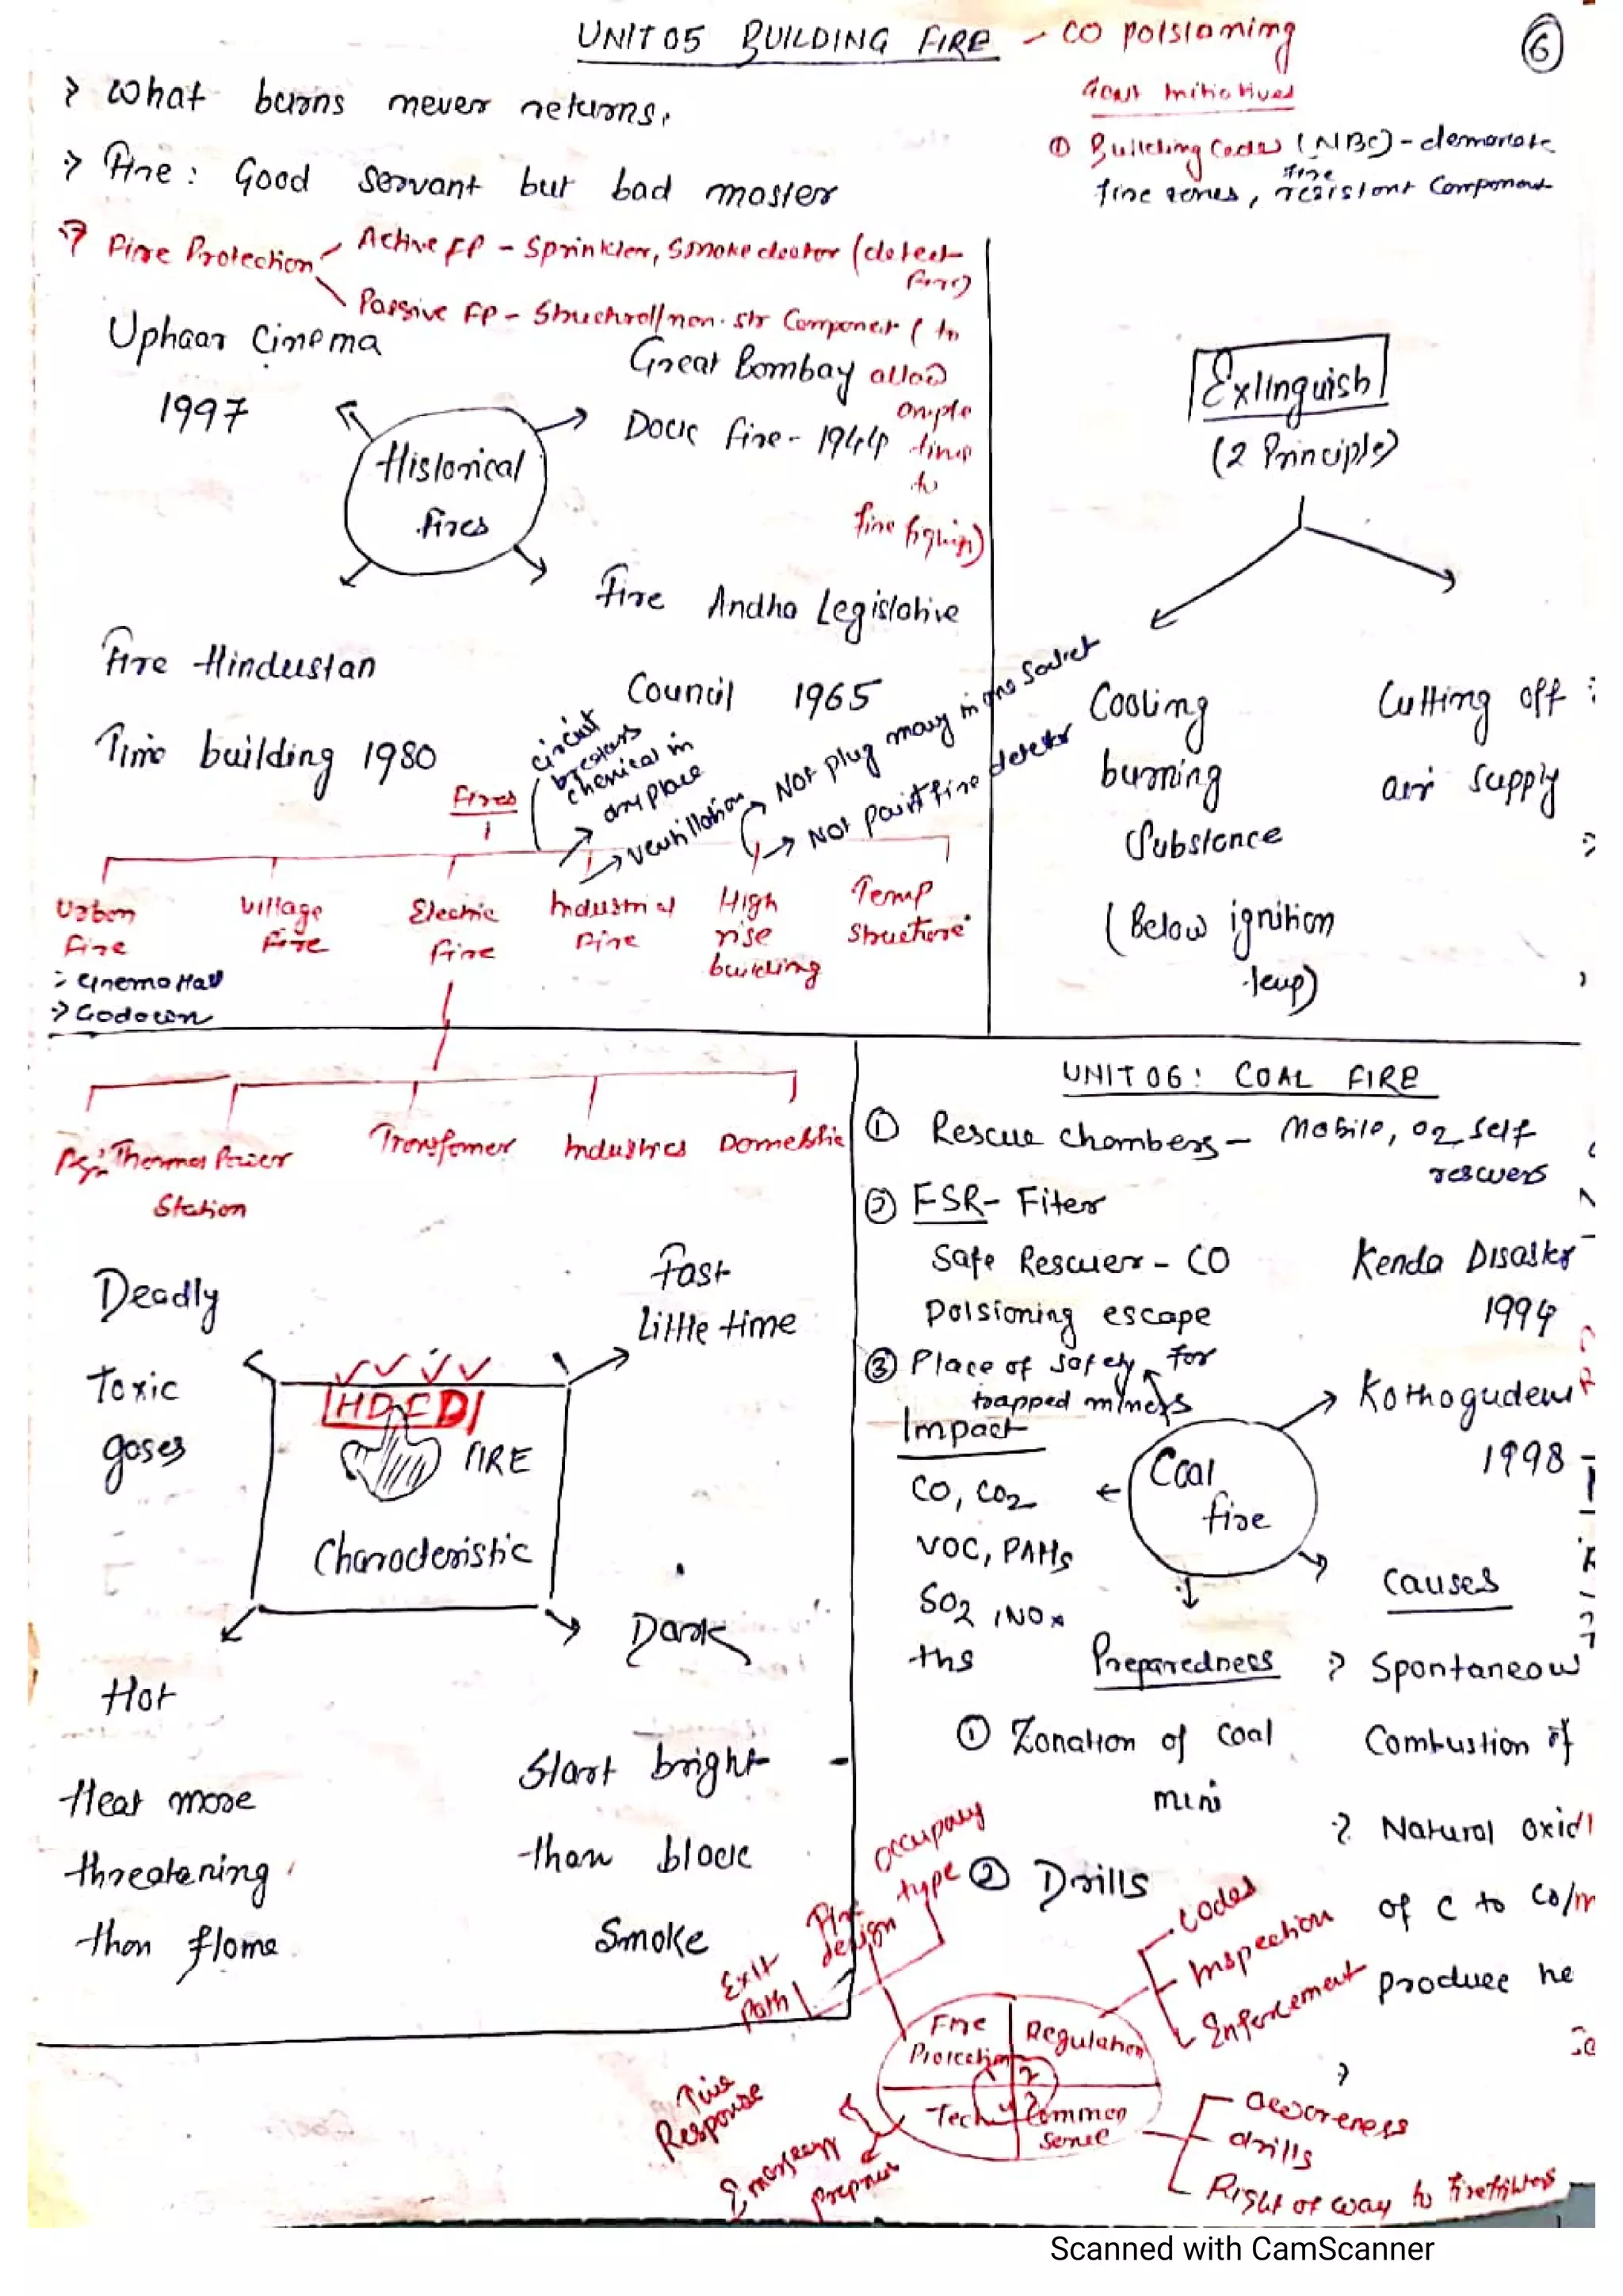 UNIT 05 BUILDING FIRE - CO Poisioning
6
> What burns never returns.
Govt Initiatives
① Building Codes (NBC) - demarcate
fire zones, fire resistant Component
> Fire: Good servant but bad master
> Fire Protection
Active FP - Sprinkler, Smoke detector (detect
fire)
Passive FP - Structural/non-str Component ( to
allow
ample
time
to
fire fighting)
Historical
fires
Uphaar Cinema
1997
Great Bombay
Dock fire - 1944
Fire Andha Legislative
Council 1965
Fire Hindustan
Time building 1980
Extinguish
(2 Principle)
Cooling
burning
Substance
(Below ignition
temp)
Cutting off
air supply
Fires
circuit
breakers
chemical in
any place
ventillation
Not plug many in one socket
Not paint fire detector
Urban
Fire
> Cinema Hall
> Godown
Village
Fire
Electric
fire
Industrial
Fire
High
rise
building
Temp
Structure
Eg: Thermal Power
Station
Transfomer
Industries
Domestic
HDFD
FIRE
Characteristic
Deadly
Toxic
gases
Fast
Little time
Hot
Heat more
threatening
than flame
Dark
Start bright
than black
Smoke
UNIT 06: COAL FIRE
① Rescue chambers - Mobile, O2 self
rescuers
② FSR- Fiter
Safe Rescuer - CO
Poisioning escape
③ Place of safety for
trapped miners
Coal
fire
Kenda Disaster
1994
Kothogudem
1998
Impact
CO, CO2
VOC, PAHs
SO2, NOx
Preparedness
① Zonation of coal
mine
② Drills
Causes
> Spontaneous
Combustion of
> Natural oxidi
of C to CO/m
Produce he
Fire
Protection
1
Regulation
2
Common
Sense
3
Tech
4
Exit
Path
design
occupany
type
Codes
Inspection
Enforcement
awareness
drills
Right of way to firefighters
Response
Emergency
Scanned with CamScanner